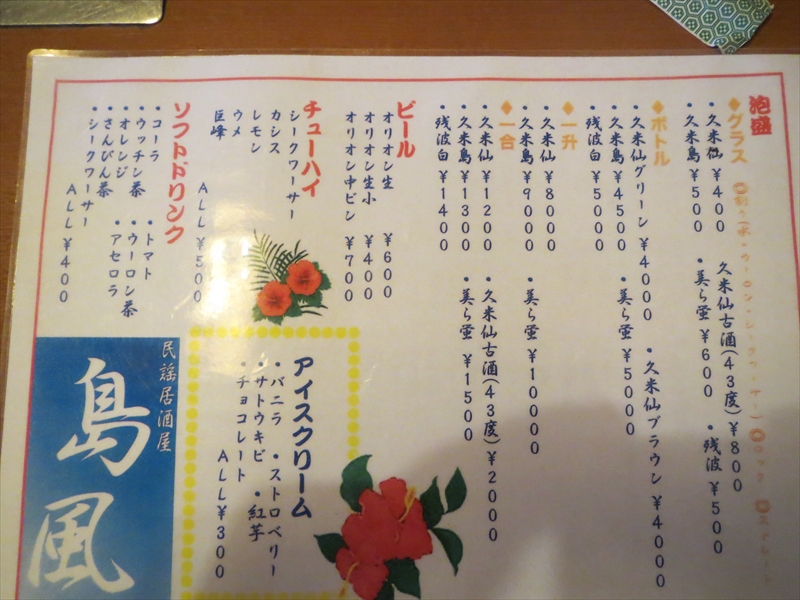 泡盛
◆グラス
・久米仙 ¥400 久米仙古酒(43度)¥800
・久米島 ¥500 ・美ら蛍 ¥600 ・残波 ¥500
◆ボトル
・久米仙グリーン ¥4000 ・久米仙ブラウン ¥4000
・久米島 ¥4500 ・美ら蛍 ¥5000
・残波白 ¥5000
◆一升
・久米仙 ¥8000
・久米島 ¥9000 ・美ら蛍 ¥10000
◆一合
・久米仙 ¥1200 ・久米仙古酒(43度)¥2000
・久米島 ¥1300 ・美ら蛍 ¥1500
・残波白 ¥1400
ビール
オリオン生 ¥600
オリオン生小 ¥400
オリオン中ビン ¥700
チューハイ
シークワーサー
カシス
レモン
ウメ
巨峰
ALL ¥500
ソフトドリンク
・コーラ ・トマト
・ウッチン茶 ・ウーロン茶
・オレンジ ・アセロラ
・さんぴん茶
・シークワーサー
ALL ¥400
アイスクリーム
・バニラ ・ストロベリー
・サトウキビ ・紅芋
・チョコレート
ALL ¥300
民謡居酒屋
島風